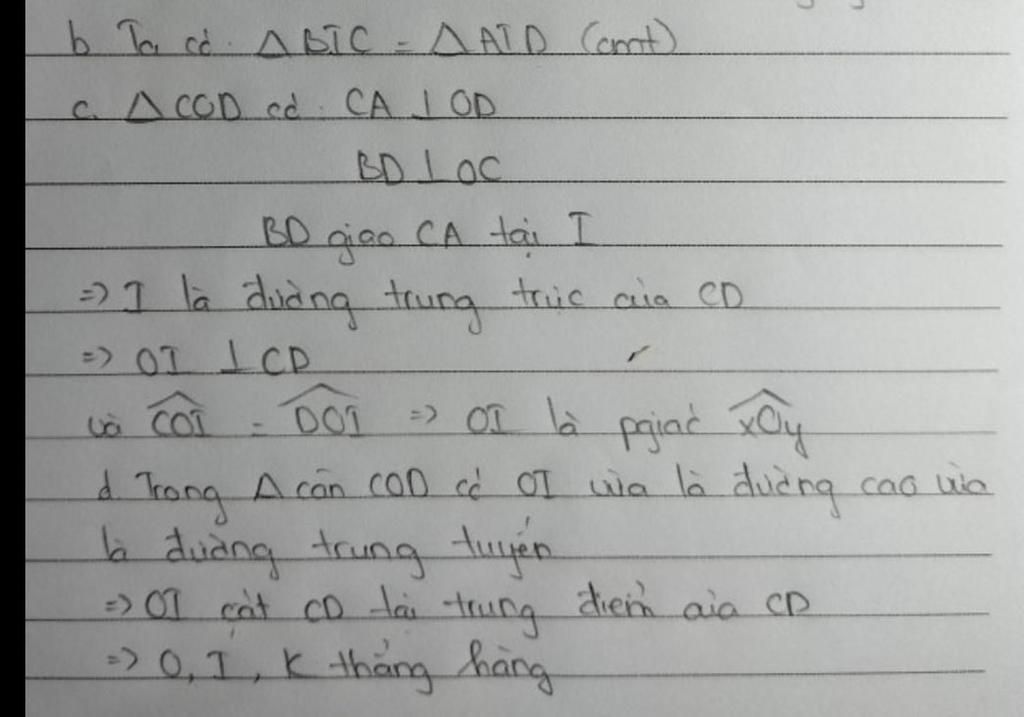 b Ta có: △BIC = △AID (cmt)
c. △COD có: CA ⊥ OD
BD ⊥ OC
BD giao CA tại I
=> I là đường trung trực của CD
=> OI ⊥ CD
và \widehat{COI} = \widehat{DOI} => OI là pgiác \widehat{xOy}
d Trong △ cân COD có OI vừa là đường cao vừa
là đường trung tuyến
=> OI cắt CD tại trung điểm của CD
=> O, I, K thẳng hàng